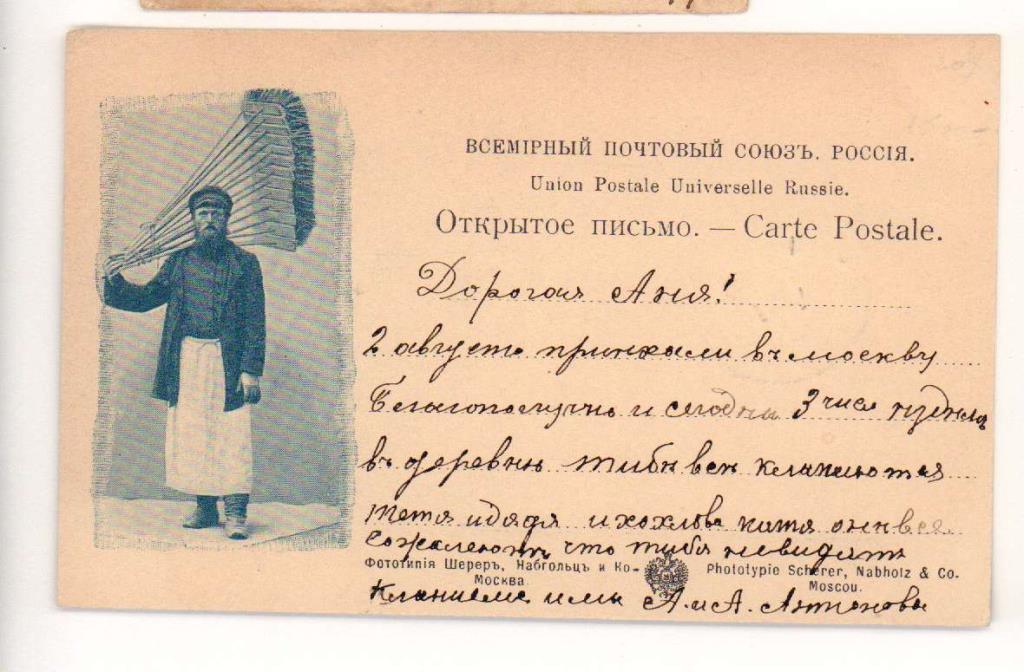 ВСЕМІРНЫЙ ПОЧТОВЫЙ СОЮЗЪ. РОССІЯ.
Union Postale Universelle Russie.
Открытое письмо. — Carte Postale.
Дорогая Аня!
2 августа приехали въ москву
Благополучно и сегодня 3 числа
въ деревню тибѣ всѣ кланеются
тетя и дядя и хохловы катя онѣ все
сожалеютъ что тибя невидать
Фототипія Шереръ, Набгольцъ и Ко-
Москва.
Phototypie Scherer, Nabholz & Co.
Moscou.
А. и А. Антоновы